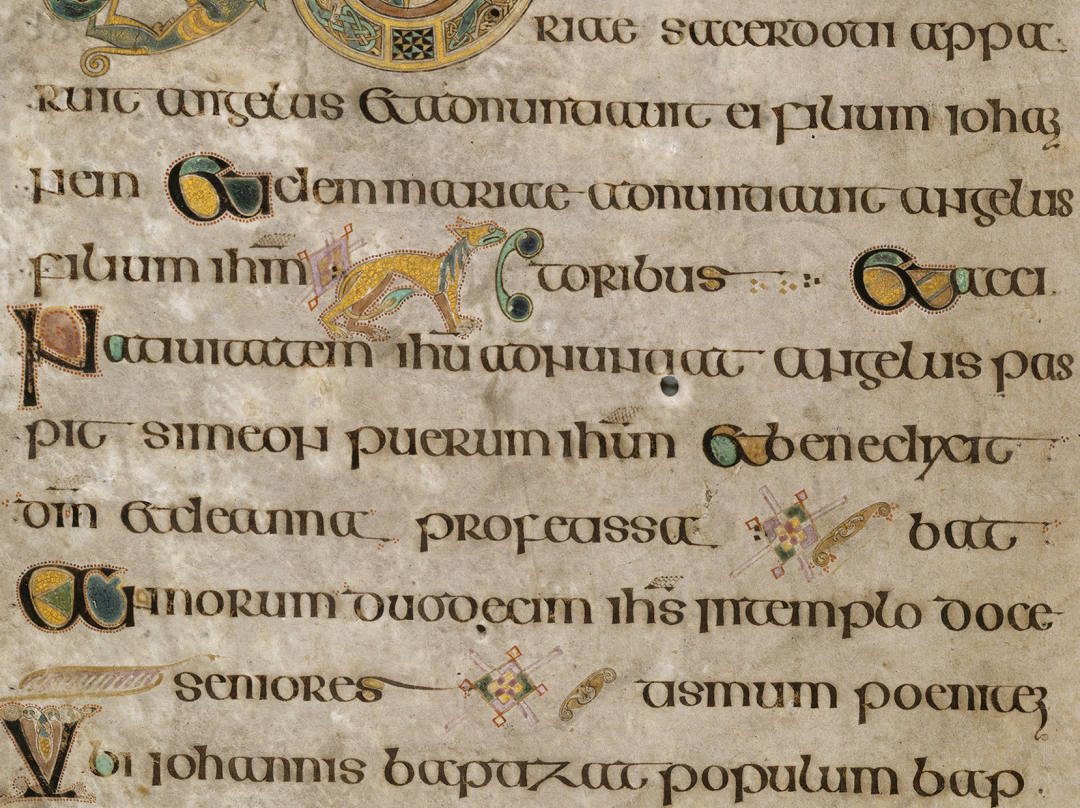 riae sacerdoti appa
ruit angelus et adnuntiauit ei filium iohan
nem Et idem mariae adnuntiauit angelus
filium ihm̄ toribus Et acci
Natiuitatem ihū adnuntiat angelus pas
pit simeon puerum ihm̄ et benedixit
dm̄ et de anna profetissa bat
Annorum duodecim ihs̄ in templo doce
seniores tismum poeniten
Vbi iohannis baptizat populum bap